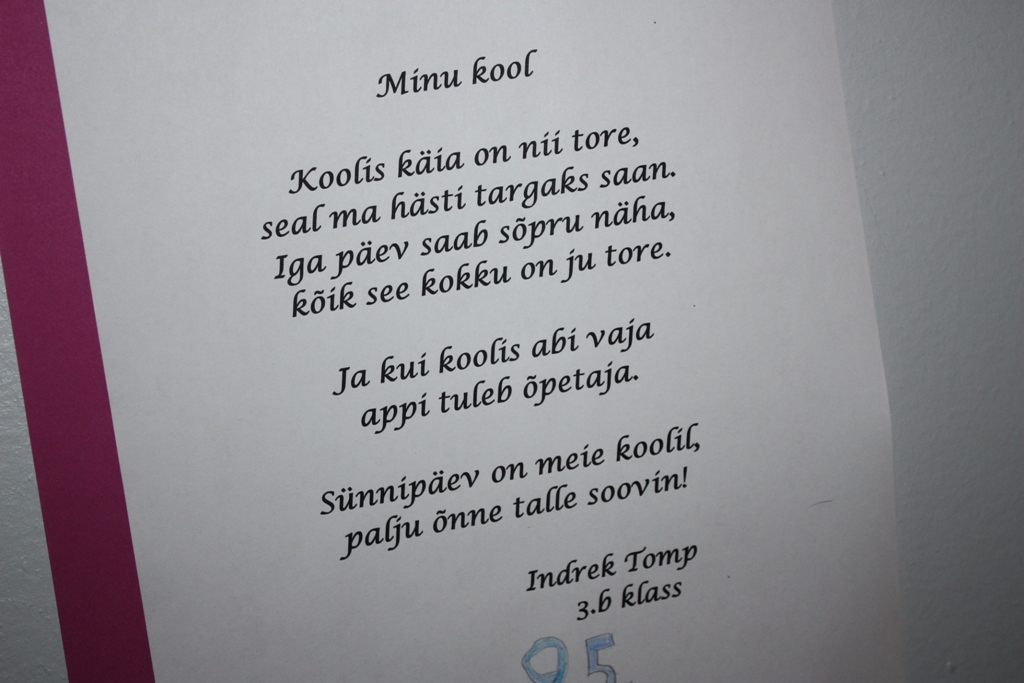 Minu kool
Koolis käia on nii tore,
seal ma hästi targaks saan.
Iga päev saab sõpru näha,
kõik see kokku on ju tore.
Ja kui koolis abi vaja
appi tuleb õpetaja.
Sünnipäev on meie koolil,
palju õnne talle soovin!
Indrek Tomp
3.b klass
95